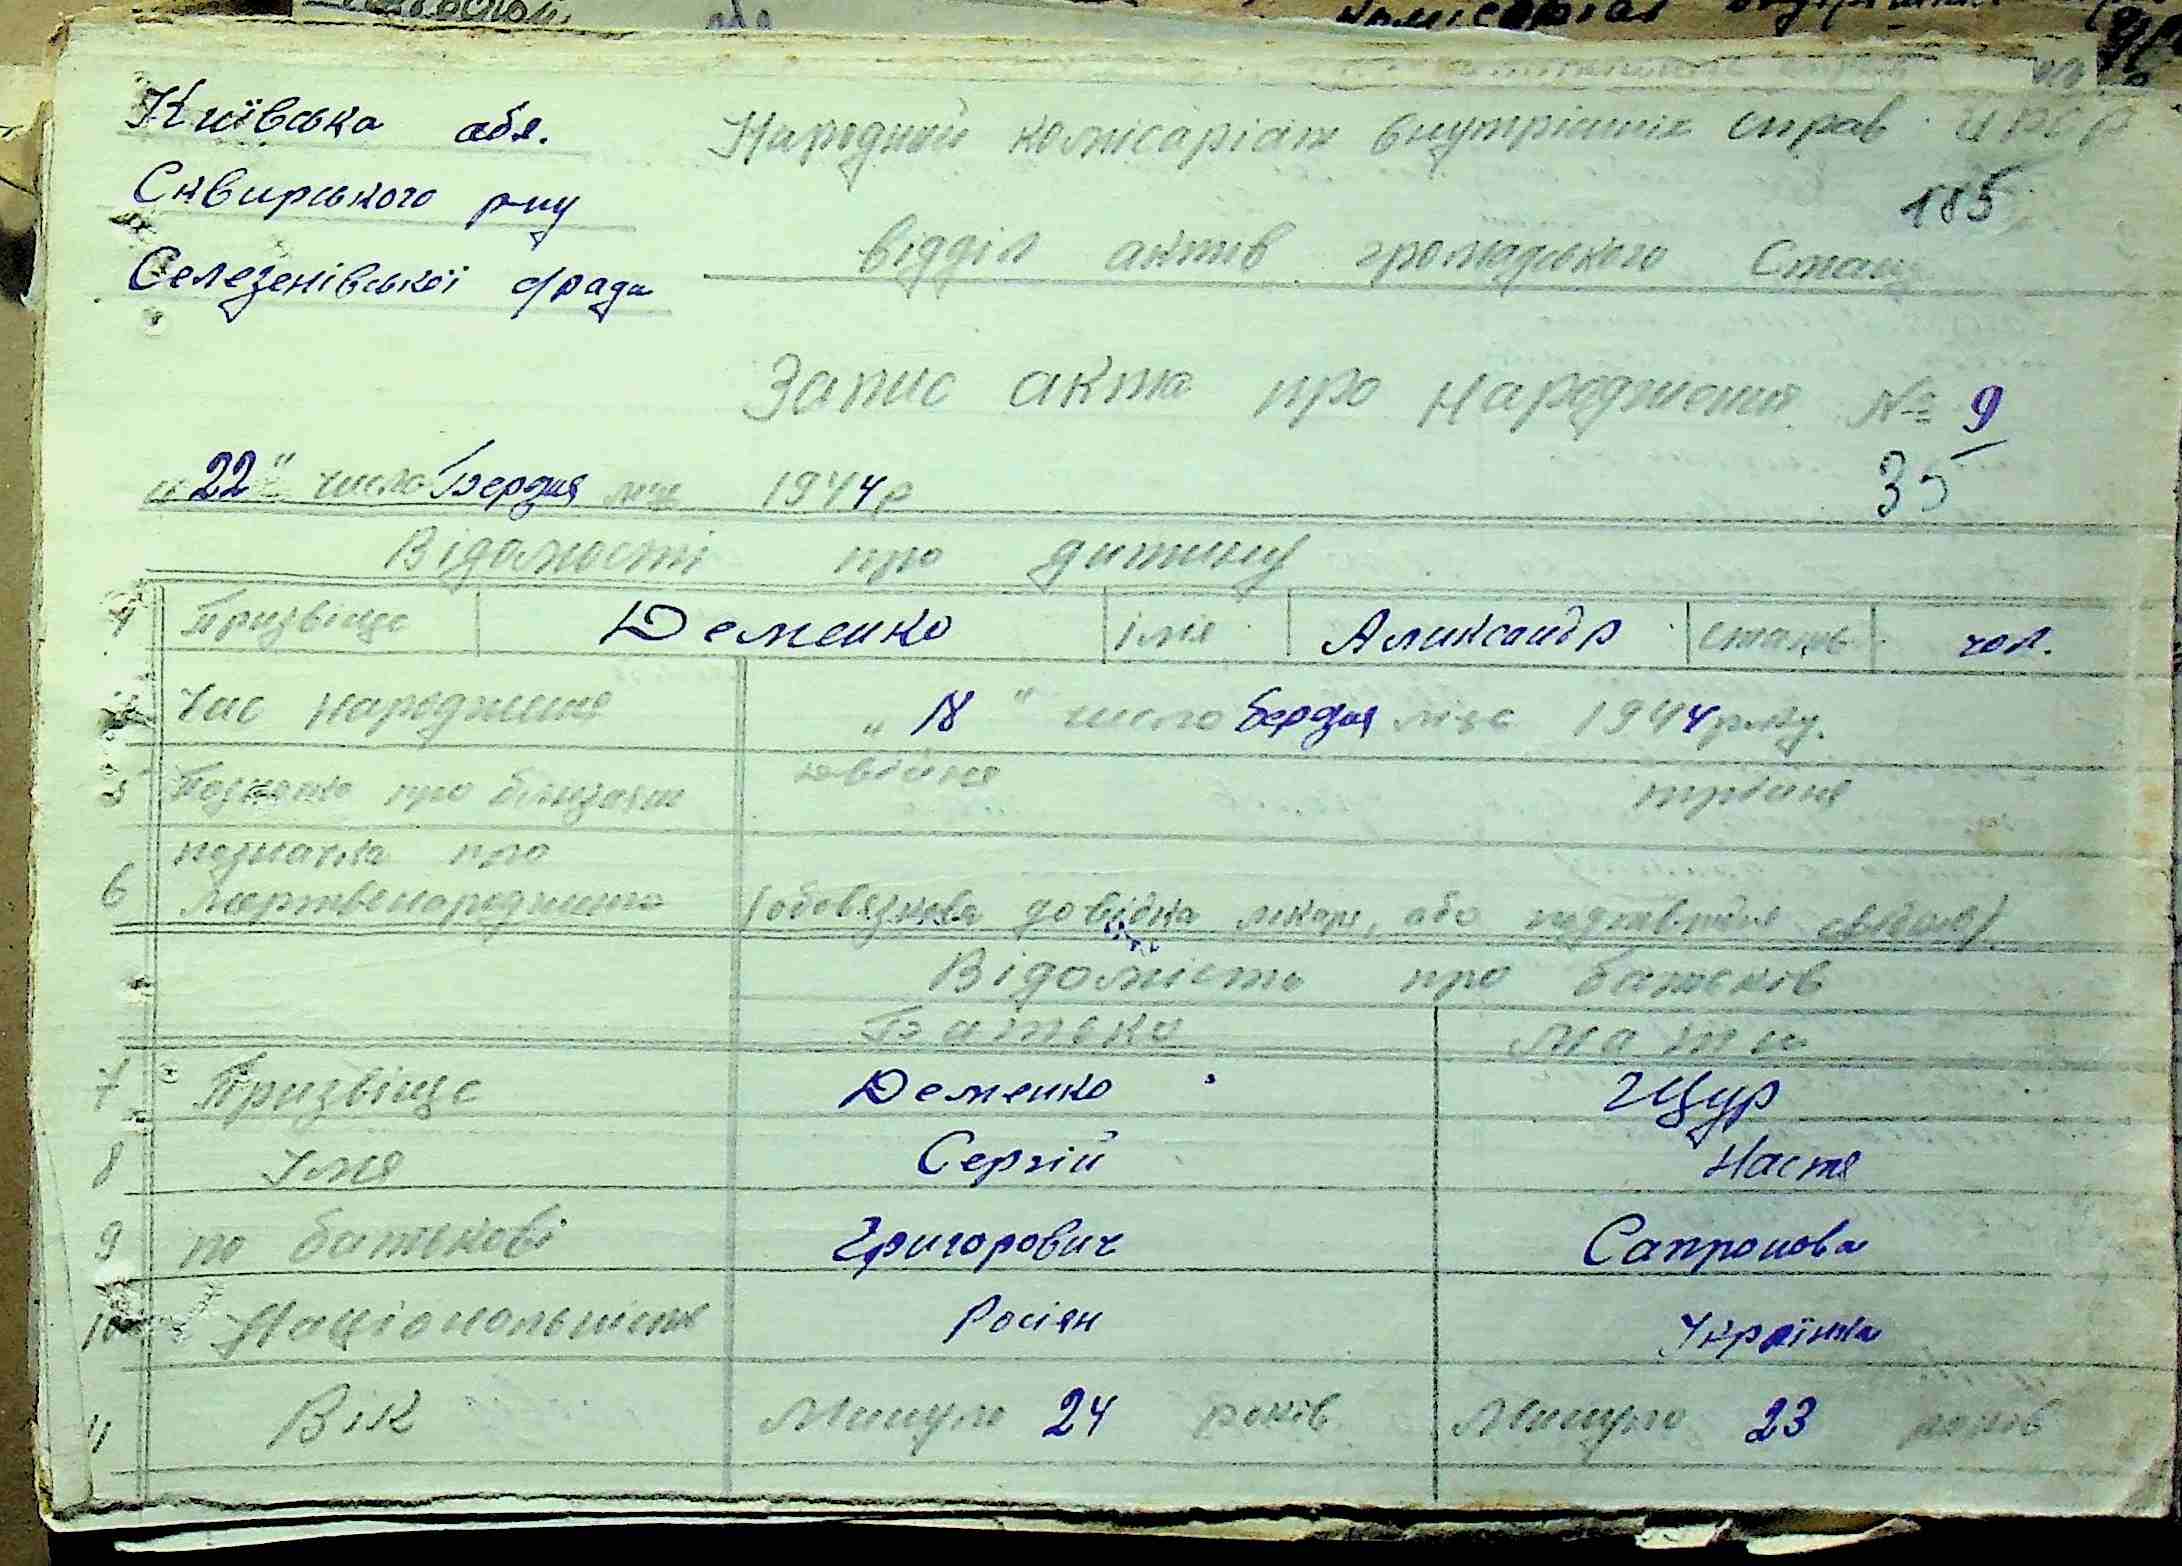 Київська обл.
Сквирського р-ну
Селезенівської с/рада
Народний комісаріат внутрішніх справ УРСР
185
відділ актів громадського Стану
Запис акта про народження № 9
35
"22" число Бердня міц 1944р
Відомості про дитину
Призвіще Деменко імя Александр стать чол.
Час народження "18" число Бердня міця 1944 року.
5 Позначка про близнят двійня трійня
6 позначка про мертвенародженого (обовязкова довідка лікаря, або
Відомість про батьків
Батько Мати
7 Призвіще Деменко Щур
8 Імя Сергій Настя
9 по батькові Григорович Сапронова
10 Національність Росіян Українка
11 Вік Минуло 24 років Минуло 23 років